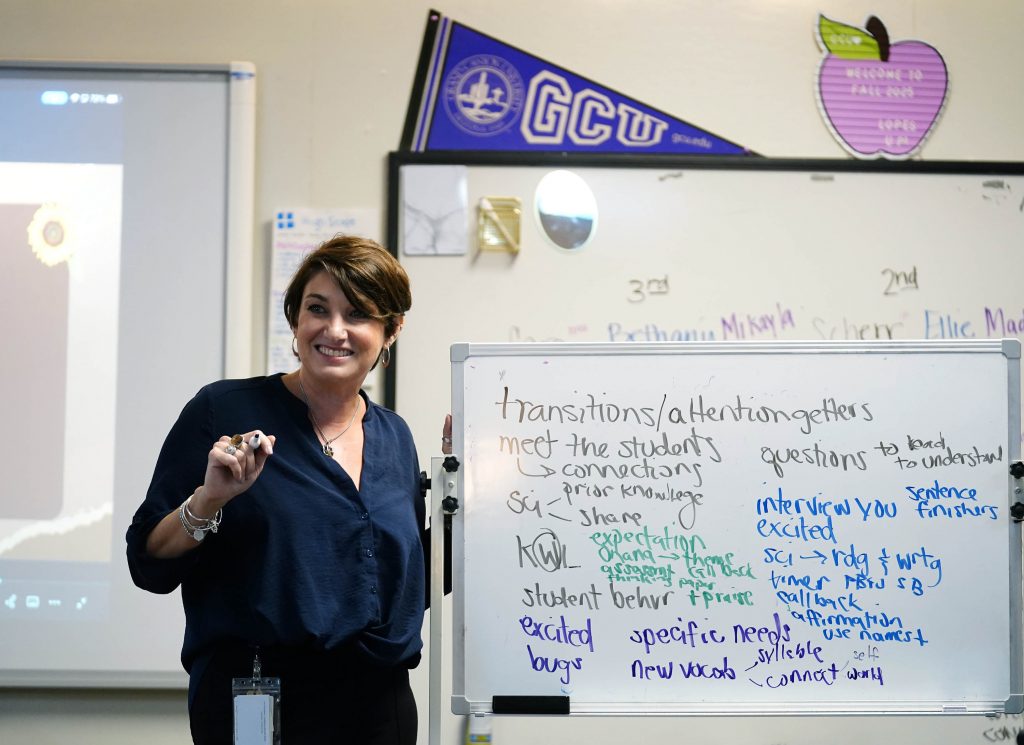 GCU
gcu.edu
WELCOME TO
FALL 2025
LOPES
UP!
3rd
2nd
Bethany Mikayla Scherr Ellie
transitions/attentiongetters
meet the students
connections
sci
prior knowlege
share
KWL
expectation
theme
call back
student behvr + praise
excited
bugs
specific needs
new vocab
syllable
connect
self
world
questions
to lead
to understand
interview you
sentence
finishers
excited
sci → rdg + wrtg
timer
callback
affirmation
use names